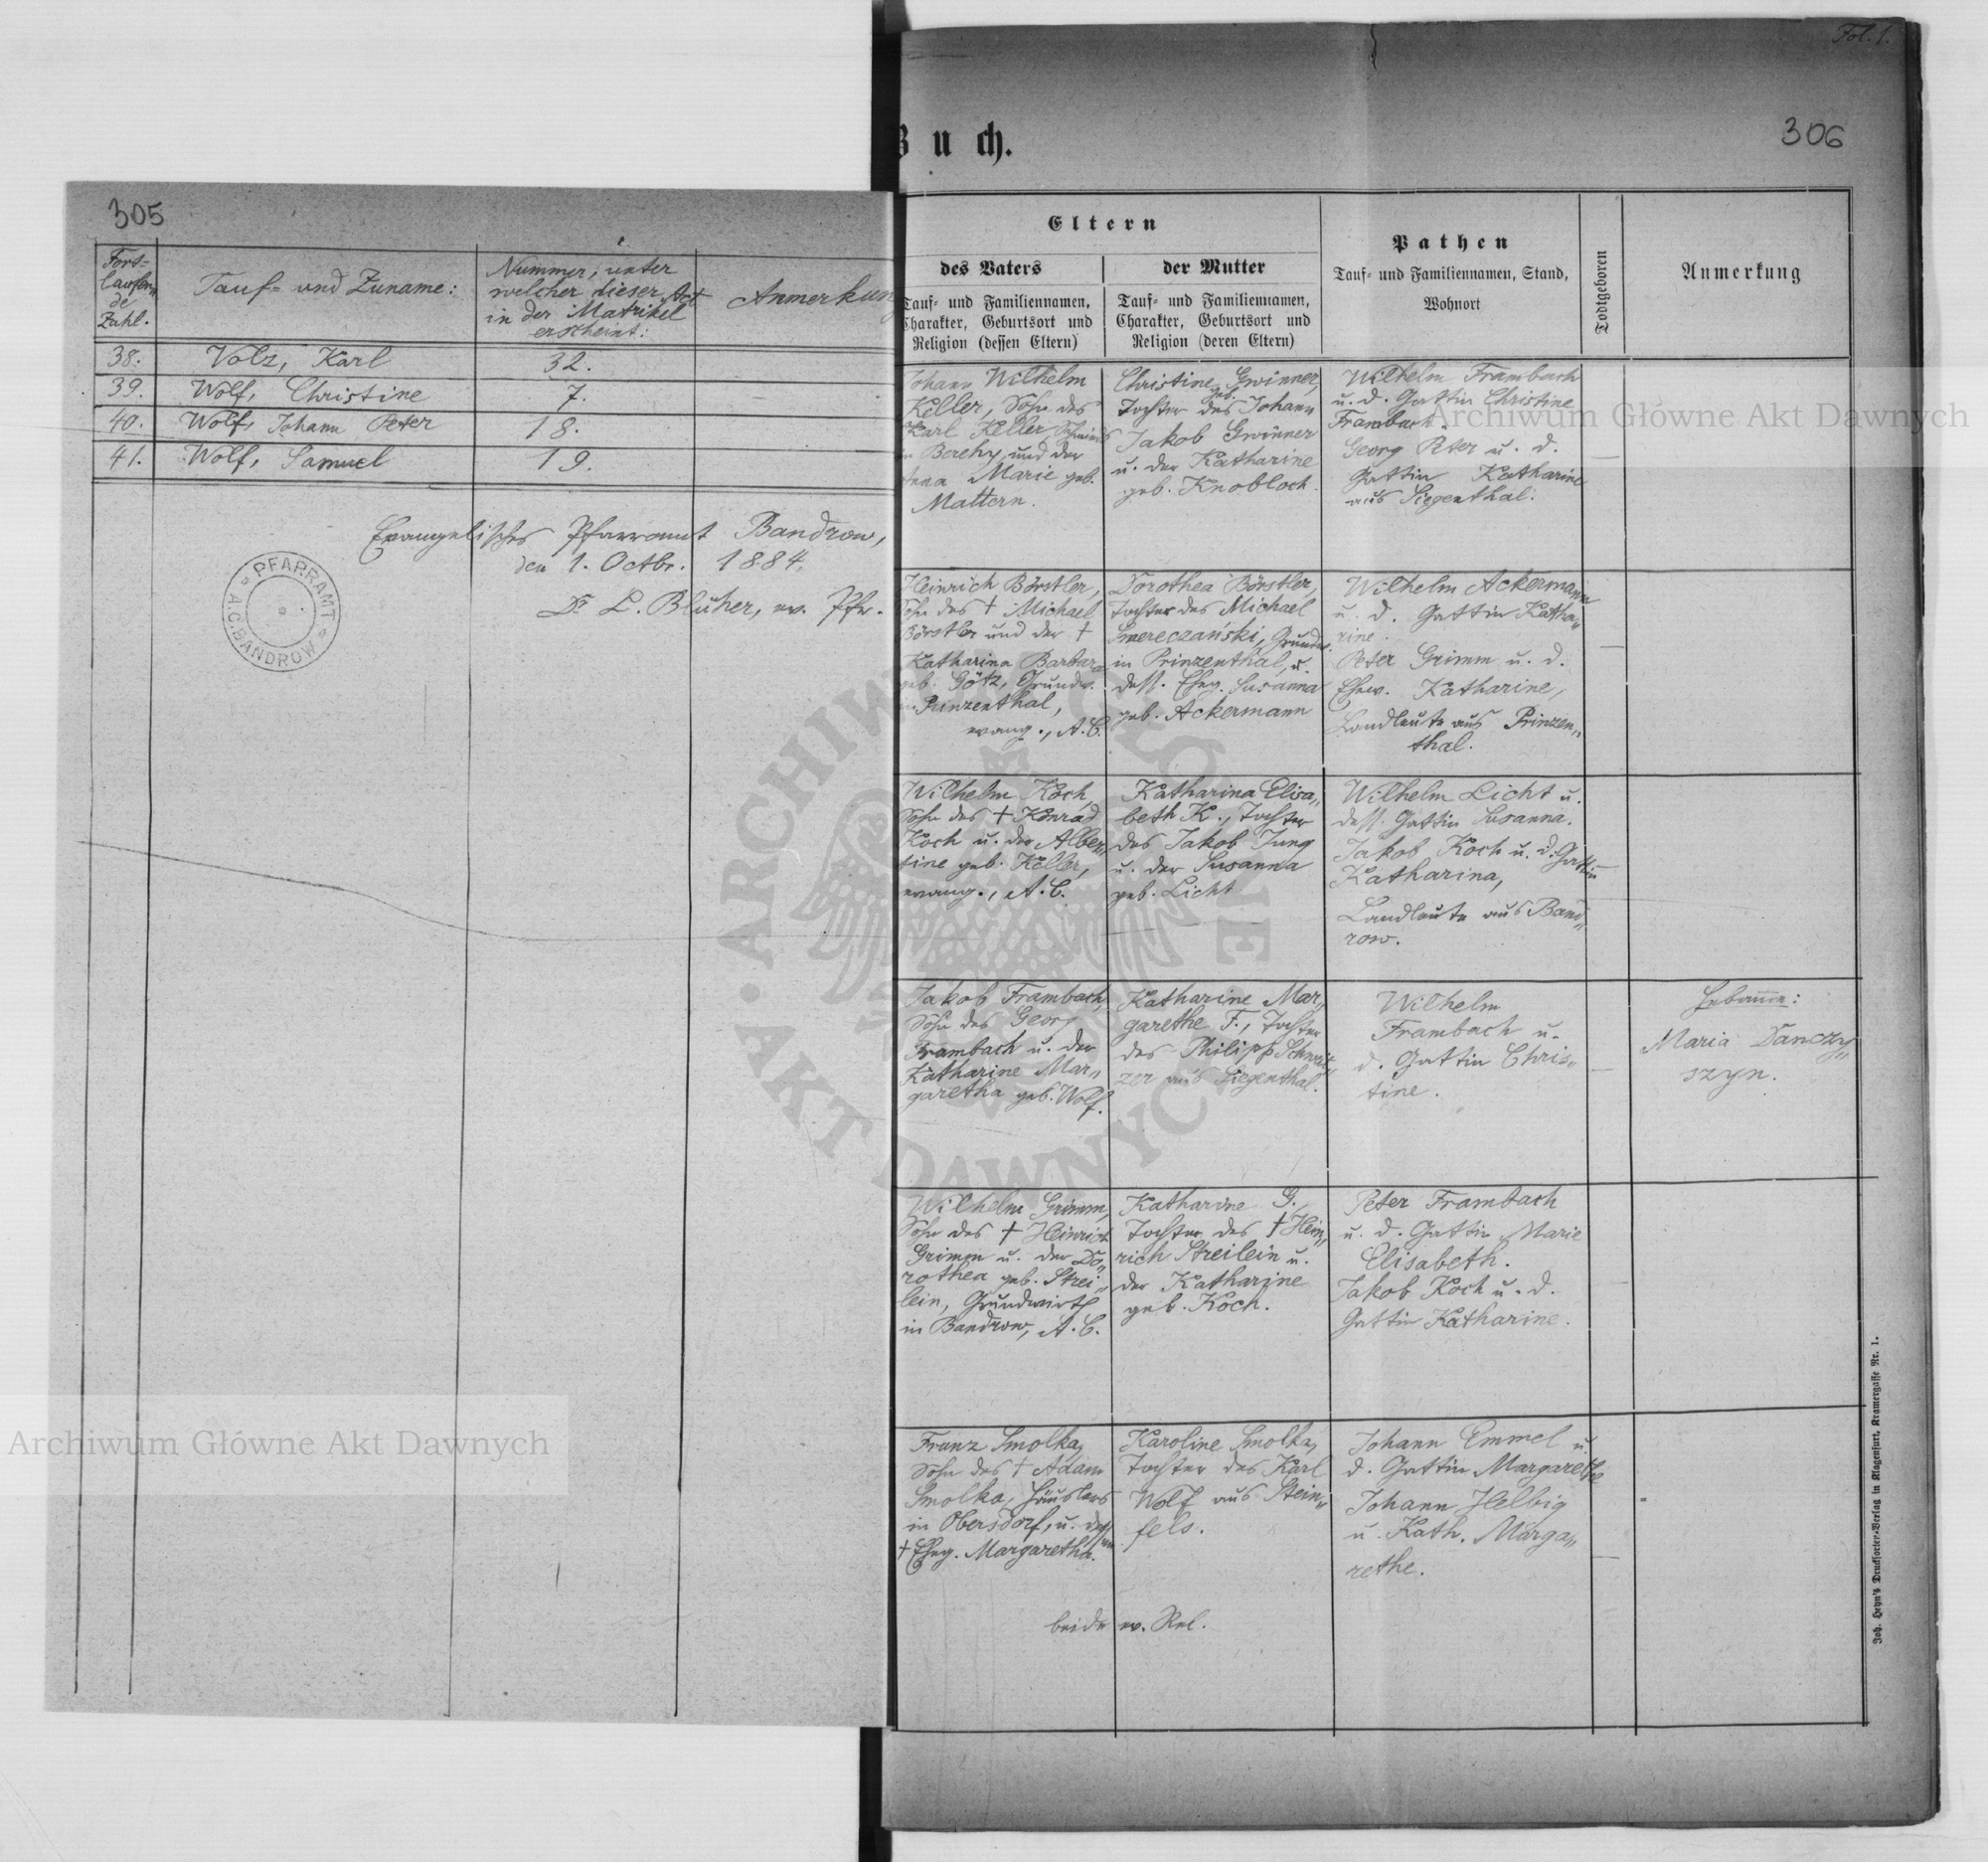 305
Fort-
laufen-
de
Zahl.
Tauf- und Zuname:
Nummer, unter
welcher dieser Act
in der Matrikel
erscheint:
Anmerkung
38. Volz, Karl 32.
39. Wolf, Christine 7.
40. Wolf, Johann Peter 18.
41. Wolf, Samuel 19.
Evangelisches Pfarramt Bandrow,
den 1. Octbr. 1884.
Dr L. Blüher, ev. Pfr.
PFARRAMT
A.C. BANDROW
Fol. 1.
306
Buch.
Eltern
des Vaters
Tauf- und Familiennamen,
Charakter, Geburtsort und
Religion (dessen Eltern)
der Mutter
Tauf- und Familiennamen,
Charakter, Geburtsort und
Religion (deren Eltern)
Pathen
Tauf- und Familiennamen, Stand,
Wohnort
Todtgeboren
Anmerkung
Johann Wilhelm
Keller, Sohn des
Karl Keller, Schmied
in Berehy, und der
Anna Marie geb.
Mattern.
Christine Gwinner,
geb.
Tochter des Johann
Jakob Gwinner
u. der Katharine
geb. Knobloch.
Wilhelm Frambach
u. d. Gattin Christine
Frambach.
Georg Peter u. d.
Gattin Katharine
aus Siegenthal.
Heinrich Börstler,
Sohn des † Michael
Börstler und der †
Katharina Barbara
geb. Götz, Grundw.
in Prinzenthal,
evang., A.C.
Dorothea Börstler,
Tochter des Michael
Smereczański, Grundw.
in Prinzenthal, u.
dess. Eheg. Susanna
geb. Ackermann
Wilhelm Ackermann
u. d. Gattin Katha„
rine.
Peter Grimm u. d.
Ehew. Katharine,
Landleute aus Prinzen„
thal.
Wilhelm Koch,
Sohn des † Konrad
Koch u. der Alber„
tine geb. Keller,
evang., A.C.
Katharina Elisa„
beth K., Tochter
des Jakob Jung
u. der Susanna
geb. Licht
Wilhelm Licht u.
dess. Gattin Susanna.
Jakob Koch u. d. Gattin
Katharina,
Landleute aus Band„
row.
Jakob Frambach,
Sohn des Georg
Frambach u. der
Katharine Mar„
garetha geb. Wolf.
Katharine Mar„
garethe F., Tochter
des Philipp Schweit„
zer aus Siegenthal.
Wilhelm
Frambach u.
d. Gattin Chris„
tine.
Hebamme:
Maria Danczy„
szyn.
Wilhelm Grimm,
Sohn des † Heinrich
Grimm u. der Do„
rothea geb. Strei„
lein, Grundwirth
in Bandrow, A.C.
Katharine G.,
Tochter des † Hein„
rich Streilein u.
der Katharine
geb. Koch.
Peter Frambach
u. d. Gattin Marie
Elisabeth.
Jakob Koch u. d.
Gattin Katharine.
Franz Smolka,
Sohn des † Adam
Smolka, Häuslers
in Obersdorf, u. dessen
† Eheg. Margaretha.
Karoline Smolka,
Tochter des Karl
Wolf aus Stein„
fels.
Johann Emmel u.
d. Gattin Margarethe
Johann Helbig
u. Kath. Marga„
rethe.
beide ev. Rel.
Joh. Heyn's Drucksorten-Verlag in Klagenfurt, Kramergasse Nr. 1.
Archiwum Główne Akt Dawnych
Archiwum Główne Akt Dawnych
ARCHIWUM GŁÓWNE
AKT DAWNYCH